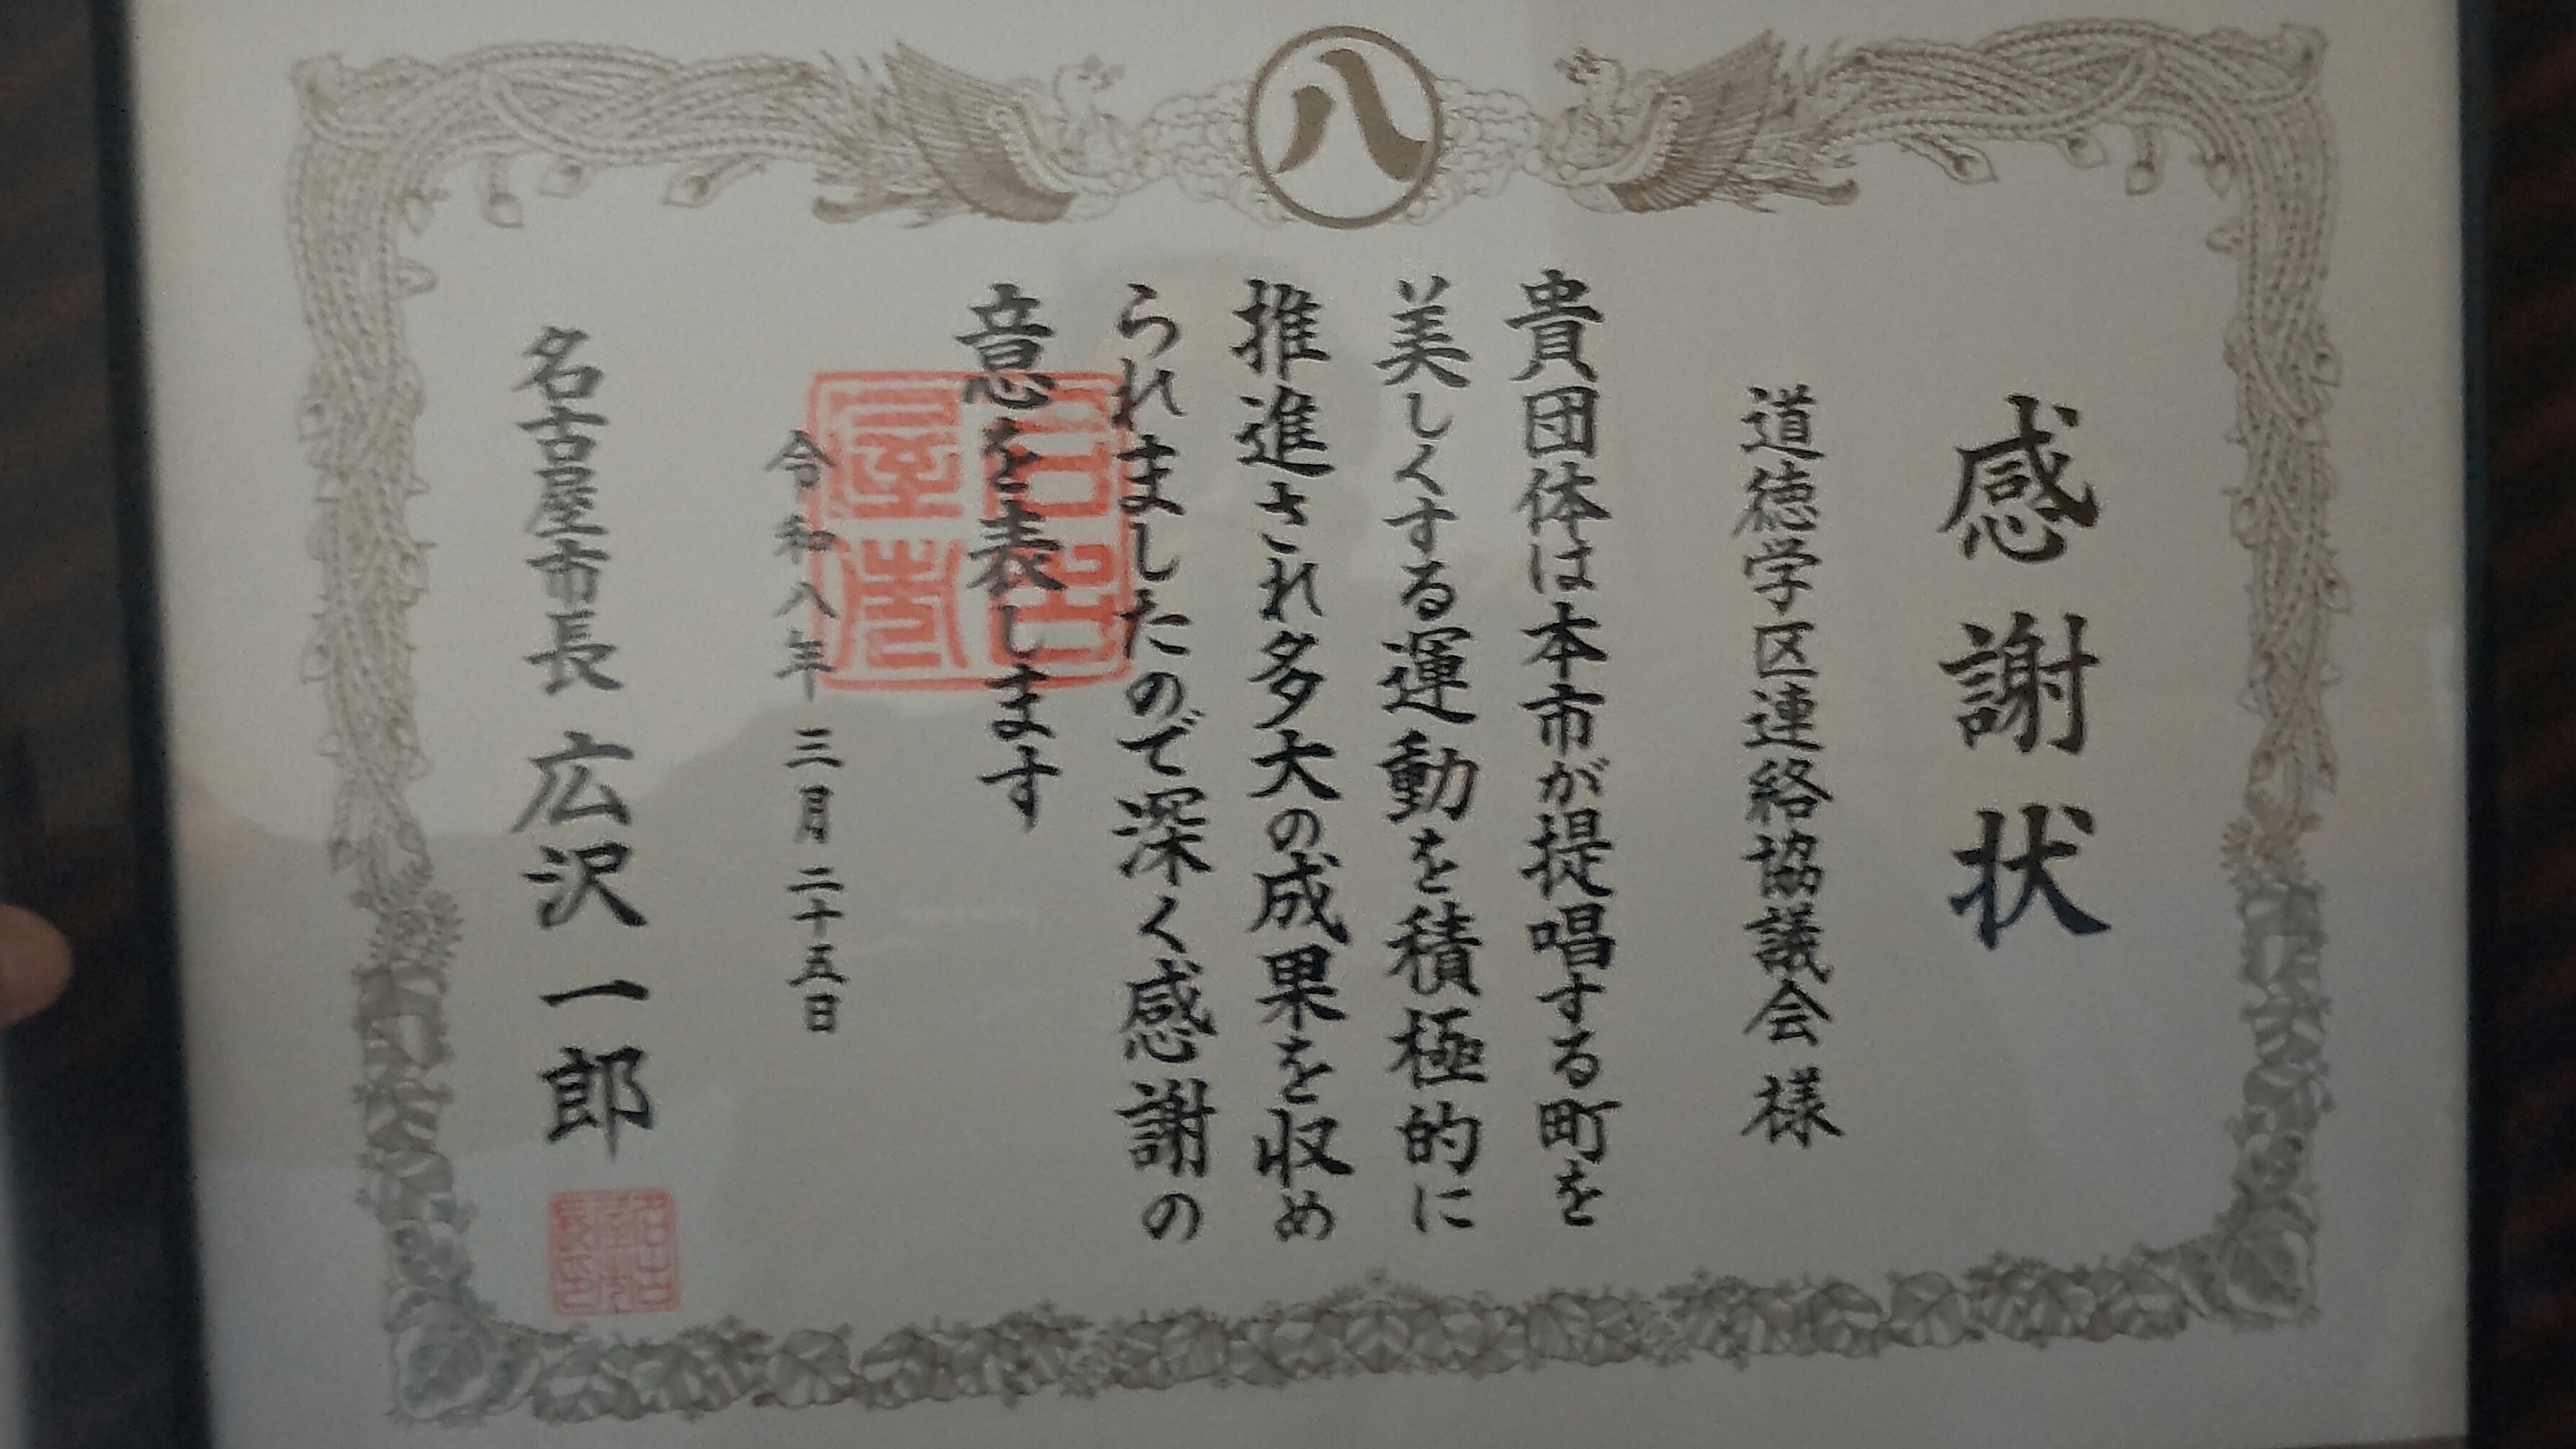 八
感謝状
道徳学区連絡協議会 様
貴団体は本市が提唱する町を
美しくする運動を積極的に
推進され多大の成果を収め
られましたので深く感謝の
意を表します
令和八年三月二十五日
名古屋市長 広沢一郎